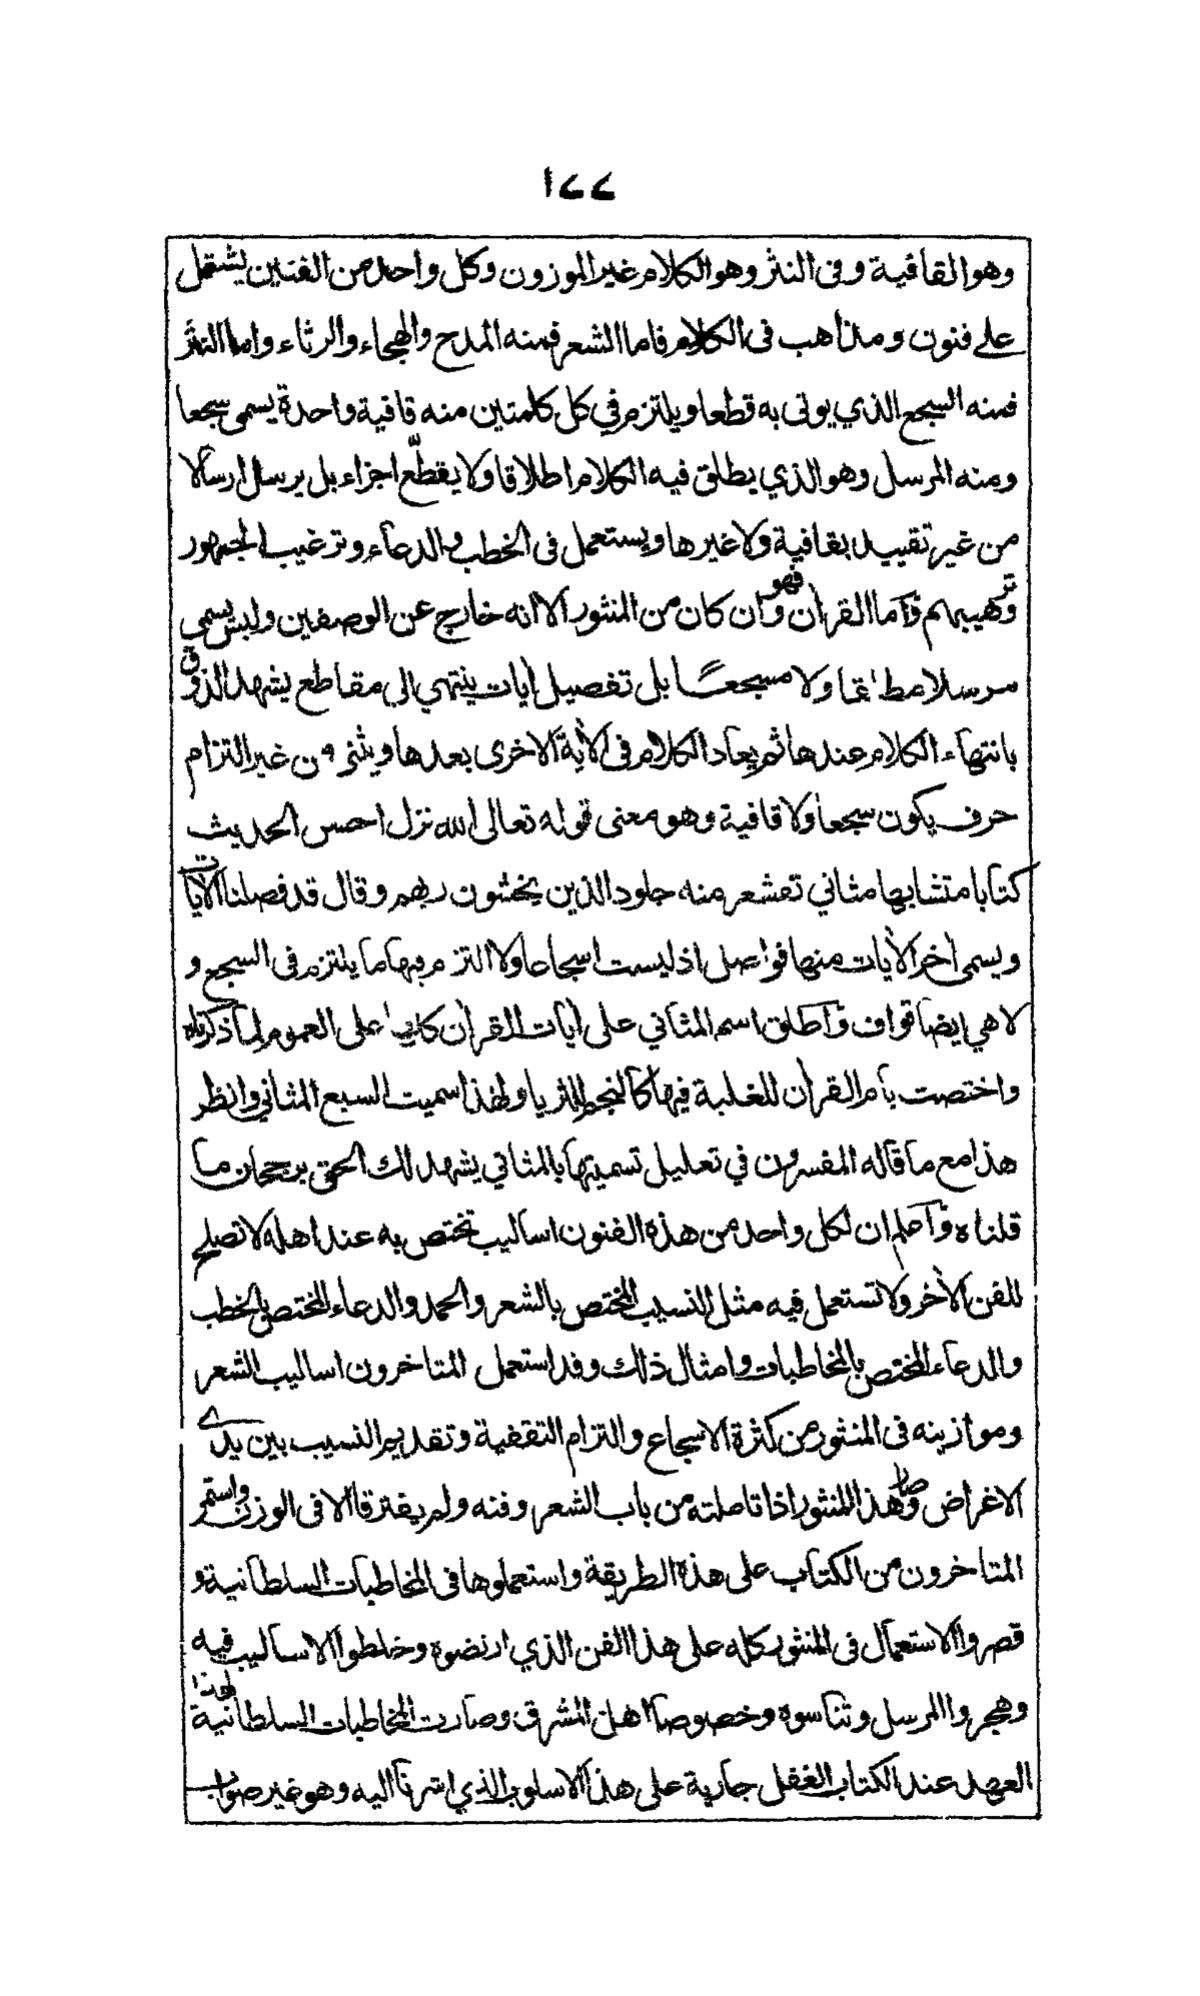 ١٢٢
وهو القافية وفى النثر وهو الكلام غير الموزون وكل واحد من الفنين يشتمل
على فنون ومذاهب فى الكلام فاما الشعر فمنه المدح والهجاء والرثاء واما النثر
فمنه السجع الذي يوتى به قطعا ويلتزم في كل كلمتين منه قافية واحدة يسمى سجعا
ومنه المرسل وهو الذي يطلق فيه الكلام اطلاقا ولا يقطّع اجزاء بل يرسل ارسالا
من غير تقييد بقافية ولا غيرها ويستعمل فى الخطب والدعاء وترغيب الجمهور
وترهيبهم وآما القرآن فهو وان كان من المنثور الا انه خارج عن الوصفين وليس يسمى
مرسلا مطلقا ولا مسجعًا بل تفصيل آيات ينتهي الى مقاطع يشهد الذوق
بانتهاء الكلام عندها ثم يعاد الكلام فى الآية الاخرى بعدها ويثنى من غير التزام
حرف يكون سجعا ولا قافية وهو معنى قوله تعالى الله نزل احسن الحديث
كتابا متشابها مثاني تقشعر منه جلود الذين يخشون ربهم وقال قد فصلنا الآيات
ويسمى آخر الآيات منها فواصل اذ ليست اسجاعا ولا التزم فيها ما يلتزم فى السجع و
لا هي ايضا قواف وآطلق اسم المثاني على آيات القرآن كلها على العموم لما ذكرناه
واختصت بآم القرآن للغلبة فيها كالنجم للثريا ولهذا سميت السبع المثاني وانظر
هذا مع ما قاله المفسرون في تعليل تسميتها بالمثاني يشهد لك الحق برجحان ما
قلناه وآعلم ان لكل واحد من هذه الفنون اساليب تختص به عند اهله لا تصلح
للفن الآخر ولا تستعمل فيه مثل النسيب المختص بالشعر والحمد والدعاء المختص بالخطب
والدعاء المختص بالمخاطبات وامثال ذلك وقد استعمل المتاخرون اساليب الشعر
وموازينه فى المنثور من كثرة الاسجاع والتزام التقفية وتقديم النسيب بين يدي
الاغراض وصار هذا المنثور اذا تاملته من باب الشعر وفنه ولم يفترقا الا فى الوزن واستمر
المتاخرون من الكتاب على هذه الطريقة واستعملوها فى المخاطبات السلطانية و
قصروا الاستعمال فى المنثور كله على هذا الفن الذي ارتضوه وخلطوا الاساليب فيه
وهجروا المرسل وتناسوه وخصوصا اهل المشرق وصارت المخاطبات السلطانية لهذا
العهد عند الكتاب الغفل جارية على هذا الاسلوب الذي اشرنا اليه وهو غير صواب